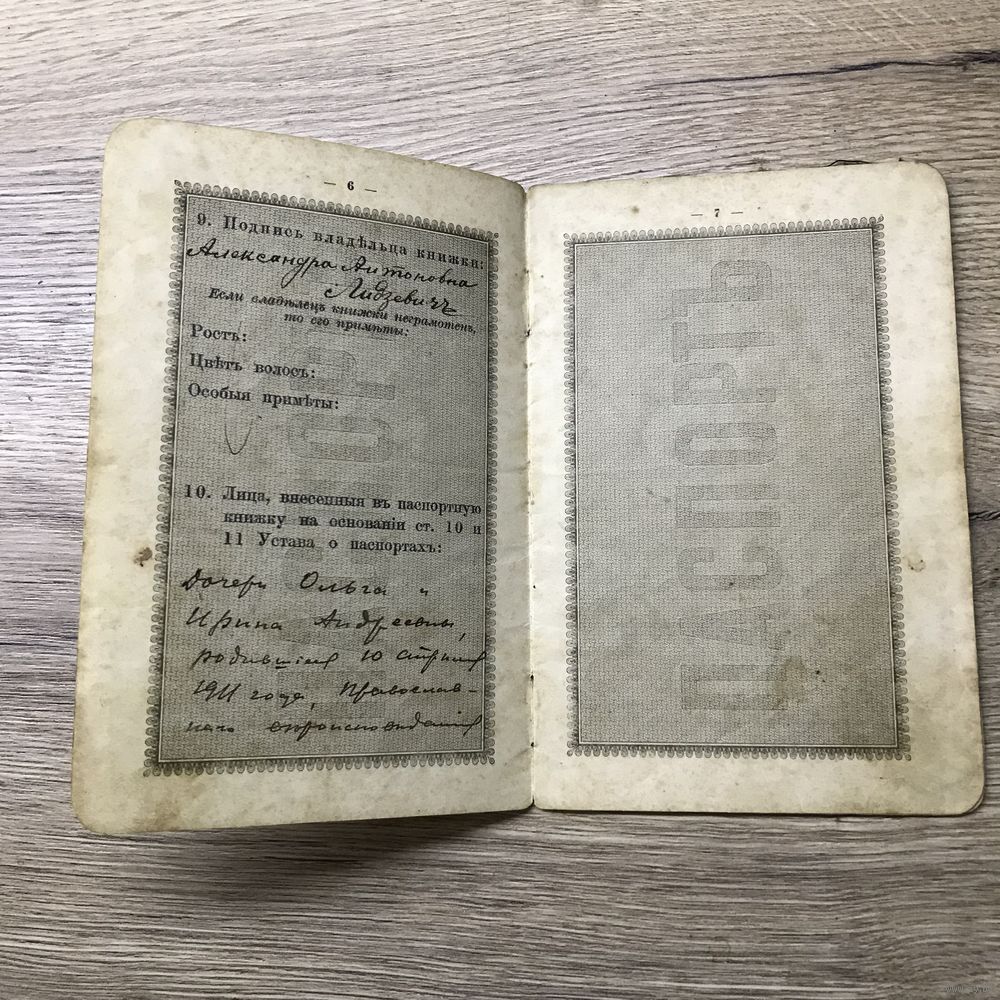 — 6 —
9. Подпись владѣльца книжки:
Александра Антоновна
Лидзевичъ
Если владѣлецъ книжки неграмотенъ,
то его примѣты:
Ростъ:
Цвѣтъ волосъ:
Особыя примѣты:
10. Лица, внесенныя въ паспортную
книжку на основаніи ст. 10 и
11 Устава о паспортахъ:
Дочери Ольга и
Ирина Андреевны,
родившіяся 10
1911 года, Православ-
наго вѣроисповѣданія
— 7 —
ПАСПОРТЪ